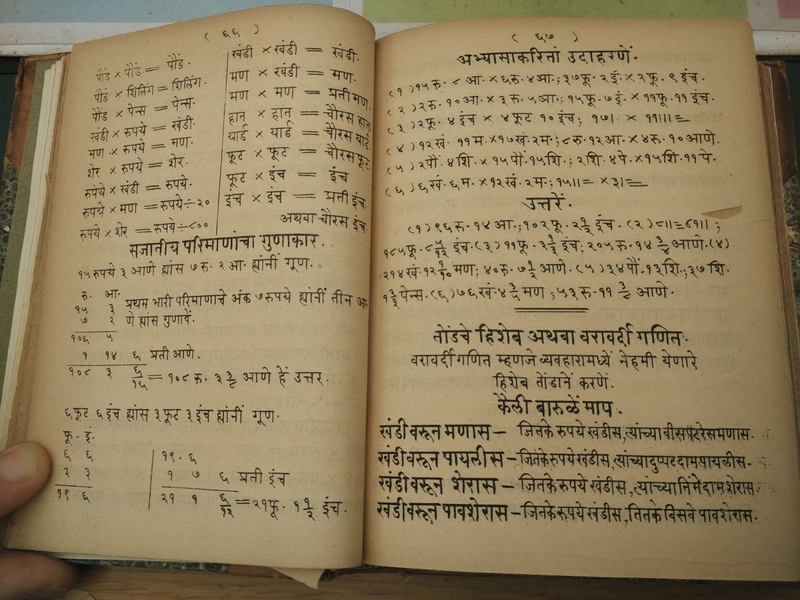 ( ६६ )
पौंड × पौंड = पौंड.
पौंड × शिलिंग = शिलिंग.
पौंड × पेन्स = पेन्स.
खंडी × रुपये = खंडी.
मण × रुपये = मण.
शेर × रुपये = शेर.
रुपये × खंडी = रुपये.
रुपये × मण = रुपये ÷ २०
रुपये × शेर = रुपये ÷ ८००
खंडी × खंडी = खंडी.
मण × खंडी = मण.
मण × मण = प्रती मण.
हात × हात = चौरस हात
यार्ड × यार्ड = चौरस यार्ड
फूट × फूट = चौरस फूट
फूट × इंच = इंच
इंच × इंच = प्रती इंच
अथवा चौरस इंच
सजातीय परिमाणांचा गुणाकार.
१५ रुपये ३ आणे ह्यांस ७ रु. २ आ. ह्यांनीं गूण.
रु. आ.
१५ ३ प्रथम भारी परिमाणाचे अंक ७ रुपये ह्यांनीं तीन आ-
७ २ णे ह्यांस गुणावें.
१०६ ५
१ १४ ६ प्रती आणे.
१०८ ३ ६/१६ = १०८ रु. ३ ३/८ आणे हें उत्तर.
६ फूट ६ इंच ह्यांस ३ फूट ३ इंच ह्यांनीं गूण.
फू. इं.
६ ६
३ ३
१९ ६
१९. ६
१ ७ ६ प्रती इंच
२१ १ ६/१२ = २१ फू. १ १/२ इंच.
( ६७ )
अभ्यासाकरितां उदाहरणें.
(१) १५ रु. ८ आ. × ६ रु. ४ आ.; ३७ फू. २ इं. × २ फू. ९ इंच.
(२) २ रु. १० आ. × ३ रु. ५ आ.; १५ फू. ७ इं. × ११ फू. ११ इंच.
(३) २ फू. ४ इंच × ४ फूट १० इंच;
(४) १२ खं. ११ म. × १७ खं. २ म.; ८ रु. १२ आ. × ४ रु. १० आणे.
(५) २ पौं. ४ शि. × १५ पौं. १५ शि.; २ शि. ४ पे. × १५ शि. ११ पे.
(६) ६ खं. ६ म. × १२ खं. २ म.;
उत्तरें.
(१) ९६ रु. १४ आ.; १०२ फू. २ १/२ इंच. (२)
१८५ फू. ८ ५/१२ इंच. (३) ११ फू. ३ १/३ इंच; २०५ रु. १४ आणे. (४)
२१४ खं. १२ १/१० मण; ४० रु. ७ १/२ आणे. (५) ३४ पौं. १३ शि.; ३७ शि.
१ २/३ पेन्स. (६) ७६ खं. ४ मण; ५३ रु. ११ आणे.
तोंडचे हिशेब अथवा वरावर्दी गणित.
वरावर्दी गणित म्हणजे व्यवहारामध्यें नेहमी येणारे
हिशेब तोंडानें करणें.
कैली बारुळें माप.
खंडीवरून मणास — जितके रुपये खंडीस, त्यांच्या वीसपट रेस मणास.
खंडीवरून पायलीस — जितके रुपये खंडीस, त्यांच्या दुप्पट दाम पायलीस.
खंडीवरून शेरास — जितके रुपये खंडीस, त्यांच्या निमे दाम शेरास.
खंडीवरून पावशेरास — जितके रुपये खंडीस, तितके विसवे पावशेरास.